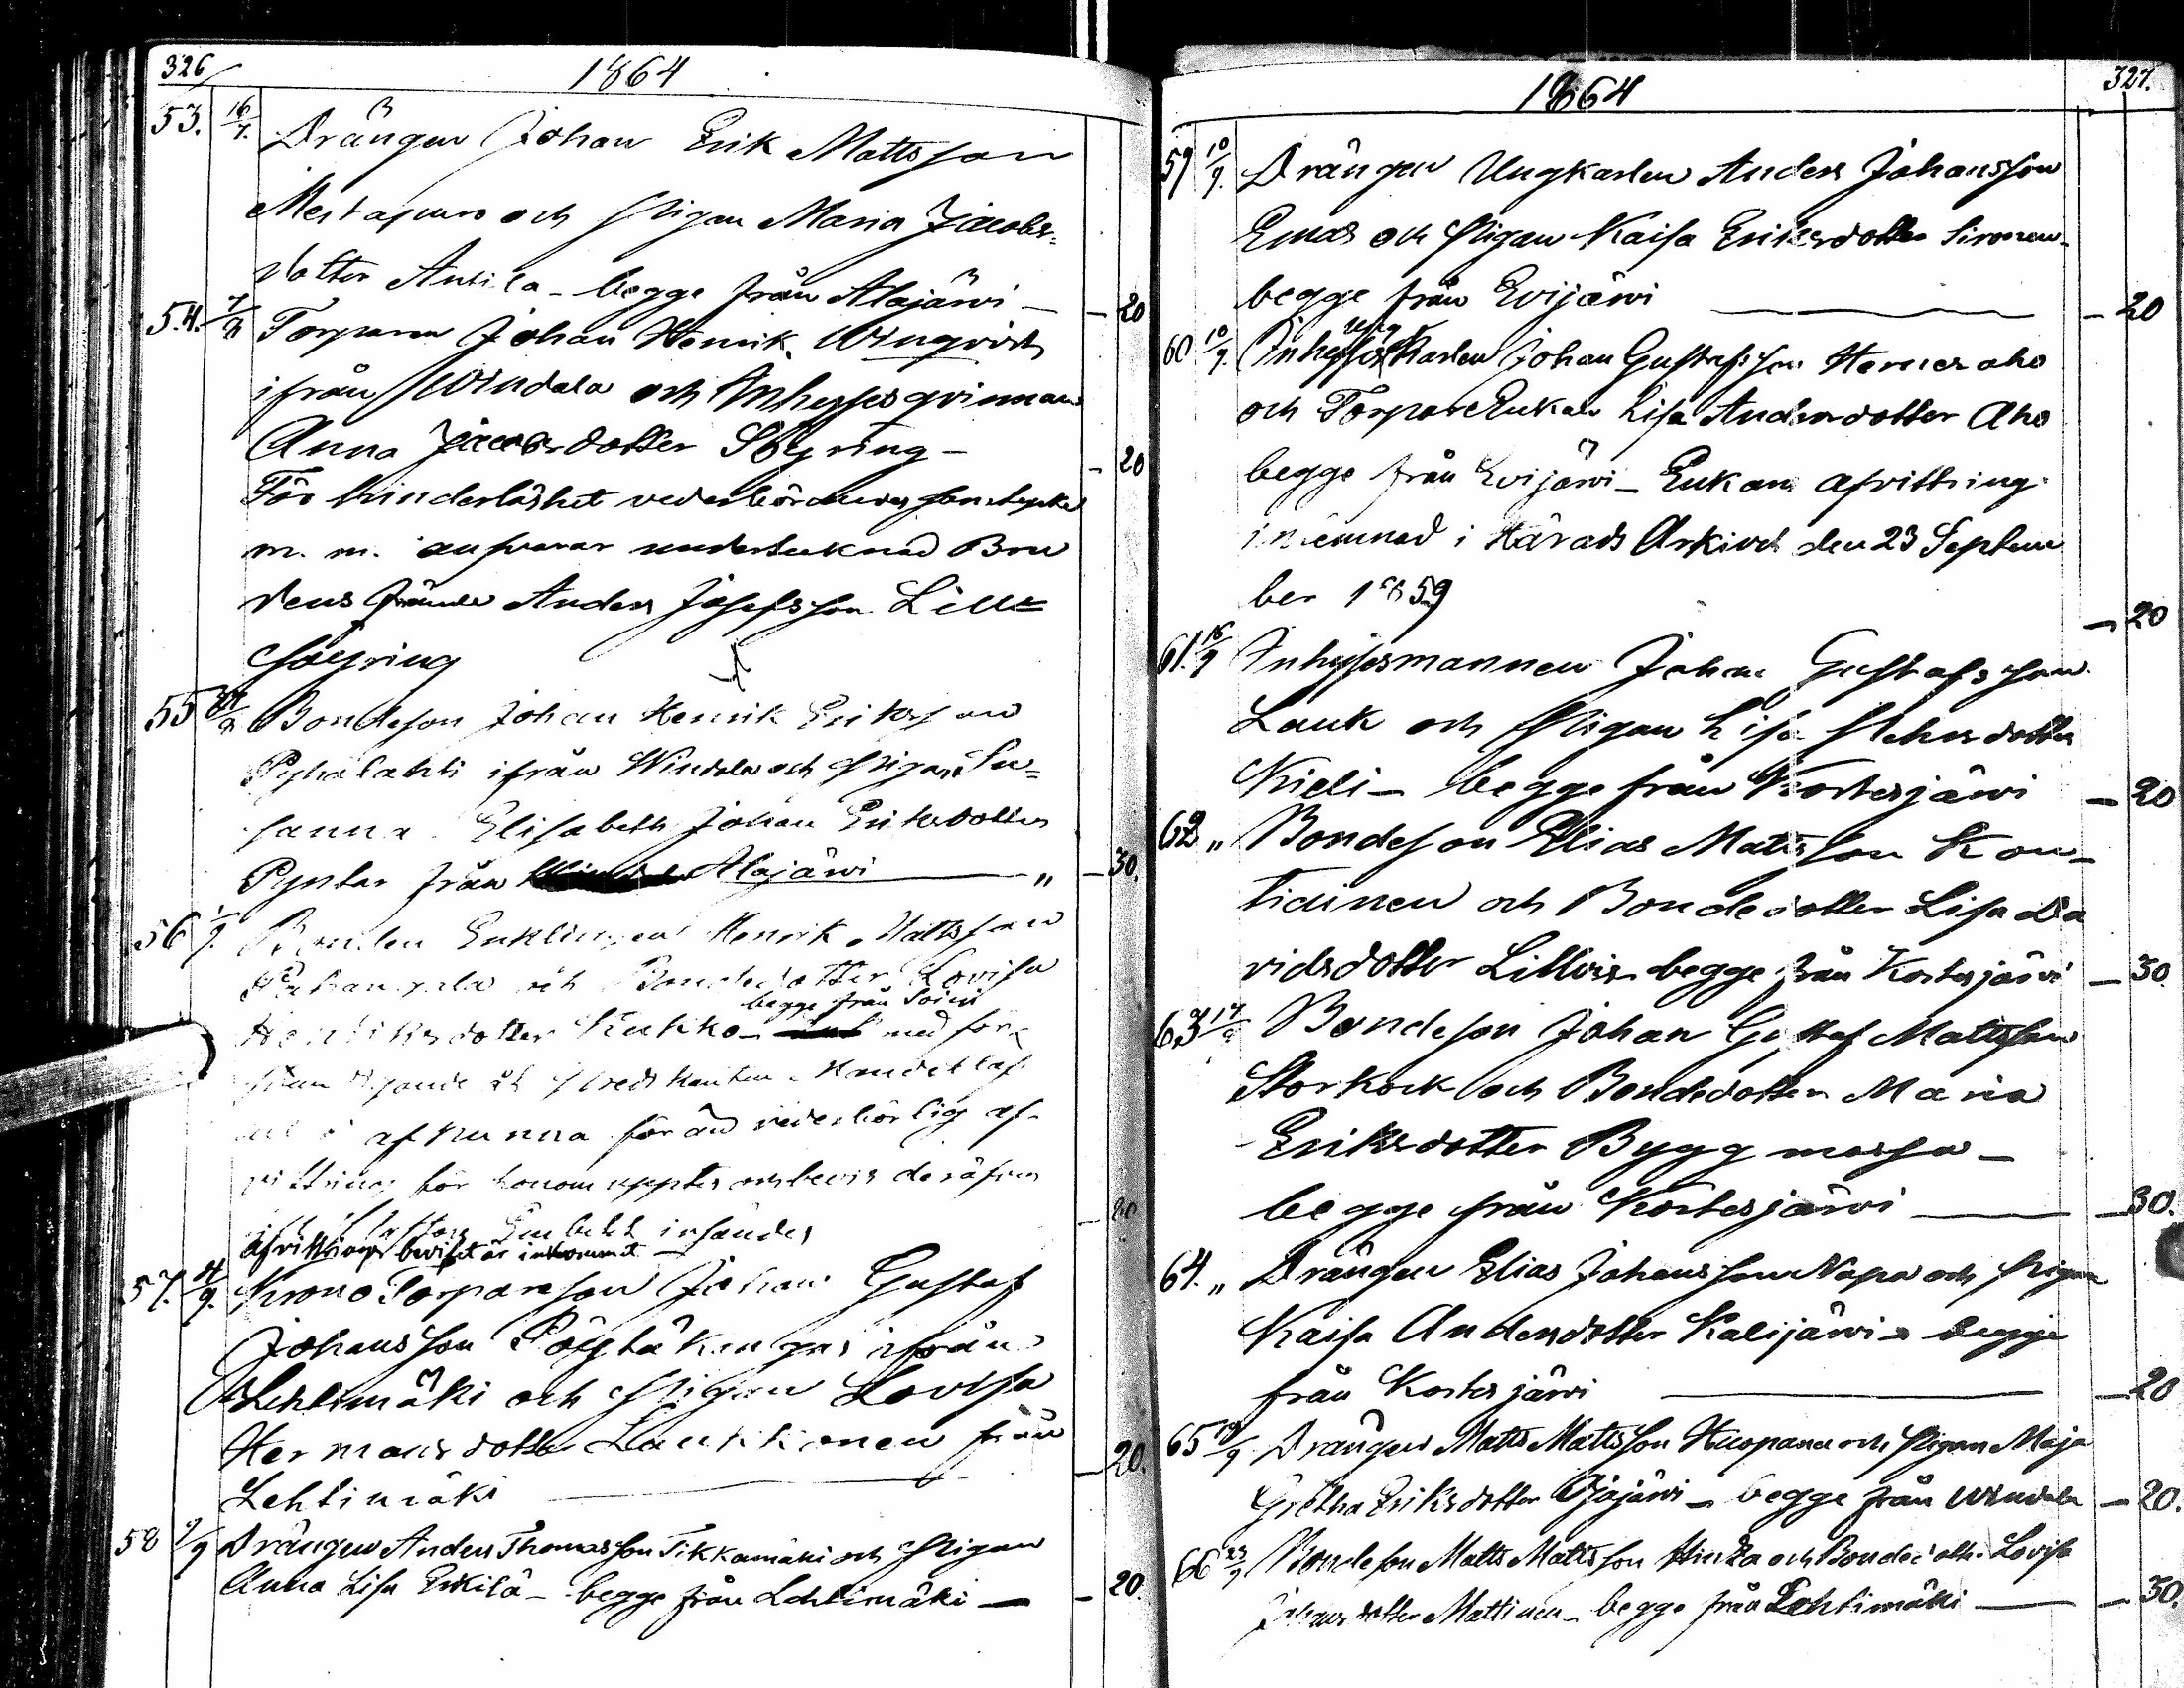 326
1864
53. 16/7. Drängen Johan Erik Mattsson
och Pigan Maria Jacobs=
dotter Antila - begge från Alajärvi - - 20
54. 7/8 Torparen Johan Henrik Wingqvist
ifrån Windala och Inhyses qvinnan
Anna Jacobsdotter Sbyring - - 20
För hinderlöshet vederbörandes samtycke
m. m. ansvarar undertecknad Bru
dens frände Anders Josefsson Lill=
sbyring
55 /8 Bondeson Johan Henrik Eriksson
Pyhälahti ifrån Windala och Pigan Su=
sanna Elisabeth Johan Eriksdotter
Pynttar från Alajärvi " - 30.
56 1/9. Bonden Enklingen Henrik Mattsson
och Bondedotter Lovisa
begge från Soini
Henriksdotter Kukko - med för=
af kunna för än vederbörlig af-
vittring för honom uppter och bevis deröfver
Embete insändes - 20
Afvittrings beviset är inkommit
57. 4/9. Krono Torpareson Johan Gustaf
Johansson Pöytäkangas ifrån
Lehtimäki och Pigan Lovisa
Hermansdotter Laukkonen från
Lehtimäki - 20.
58 9/9 Drängen Anders Thomasson Tikkamäki och Pigan
Anna Lisa Erkilä - begge från Lehtimäki - - 20.
1864
327.
59 10/9. Drängen Ungkarlen Anders Johansson
Emas och Pigan Kaisa Eriksdotter Sironen -
begge från Evijärvi - 20
ung
60 10/9. Inhyses Karlen Johan Gustafsson Hernesaho
och Torpare Enkan Lisa Andersdotter Aho
begge från Evijärvi - Enkans afvittring
inlemnad i Härads Arkivet den 23 Septem
ber 1859 - 20
61. 16/9 Inhysesmannen Johan Gustafsson
Lauk och Pigan Lisa Johansdotter
Kieli - begge från Kortesjärvi - 20
62 " Bondeson Elias Mattsson Kon-
tiainen och Bondedotter Lisa Da
vidsdotter Lillvis - begge från Kortesjärvi - 30.
63 17/9 Bondeson Johan Gustaf Mattsson
Storkock och Bondedotter Maria
Eriksdotter Byggmassa -
begge från Kortesjärvi - 30.
64. " Drängen Elias Johansson Napa och Pigan
Kaisa Andersdotter Kalijärvi - begge
från Kortesjärvi - 20
65 19/9 Drängen Matts Mattsson Kuopana och Pigan Maja
Gretha Eriksdotter Ojajärvi - begge från Windala - 20.
66 23/9 Bondeson Matts Mattsson Hinkka och Bondedotter Lovisa
Johansdotter Mattinen - begge från Lehtimäki - 30.